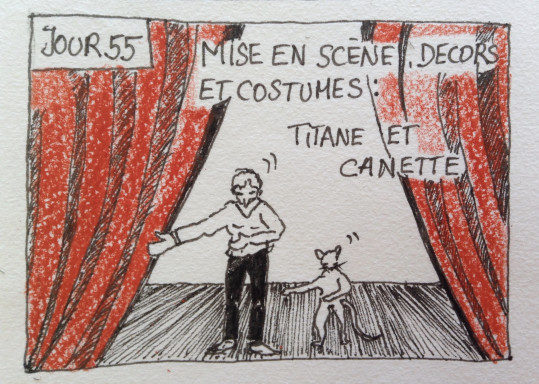 JOUR 55
MISE EN SCÈNE, DECORS
ET COSTUMES :
TITANE ET
CANETTE